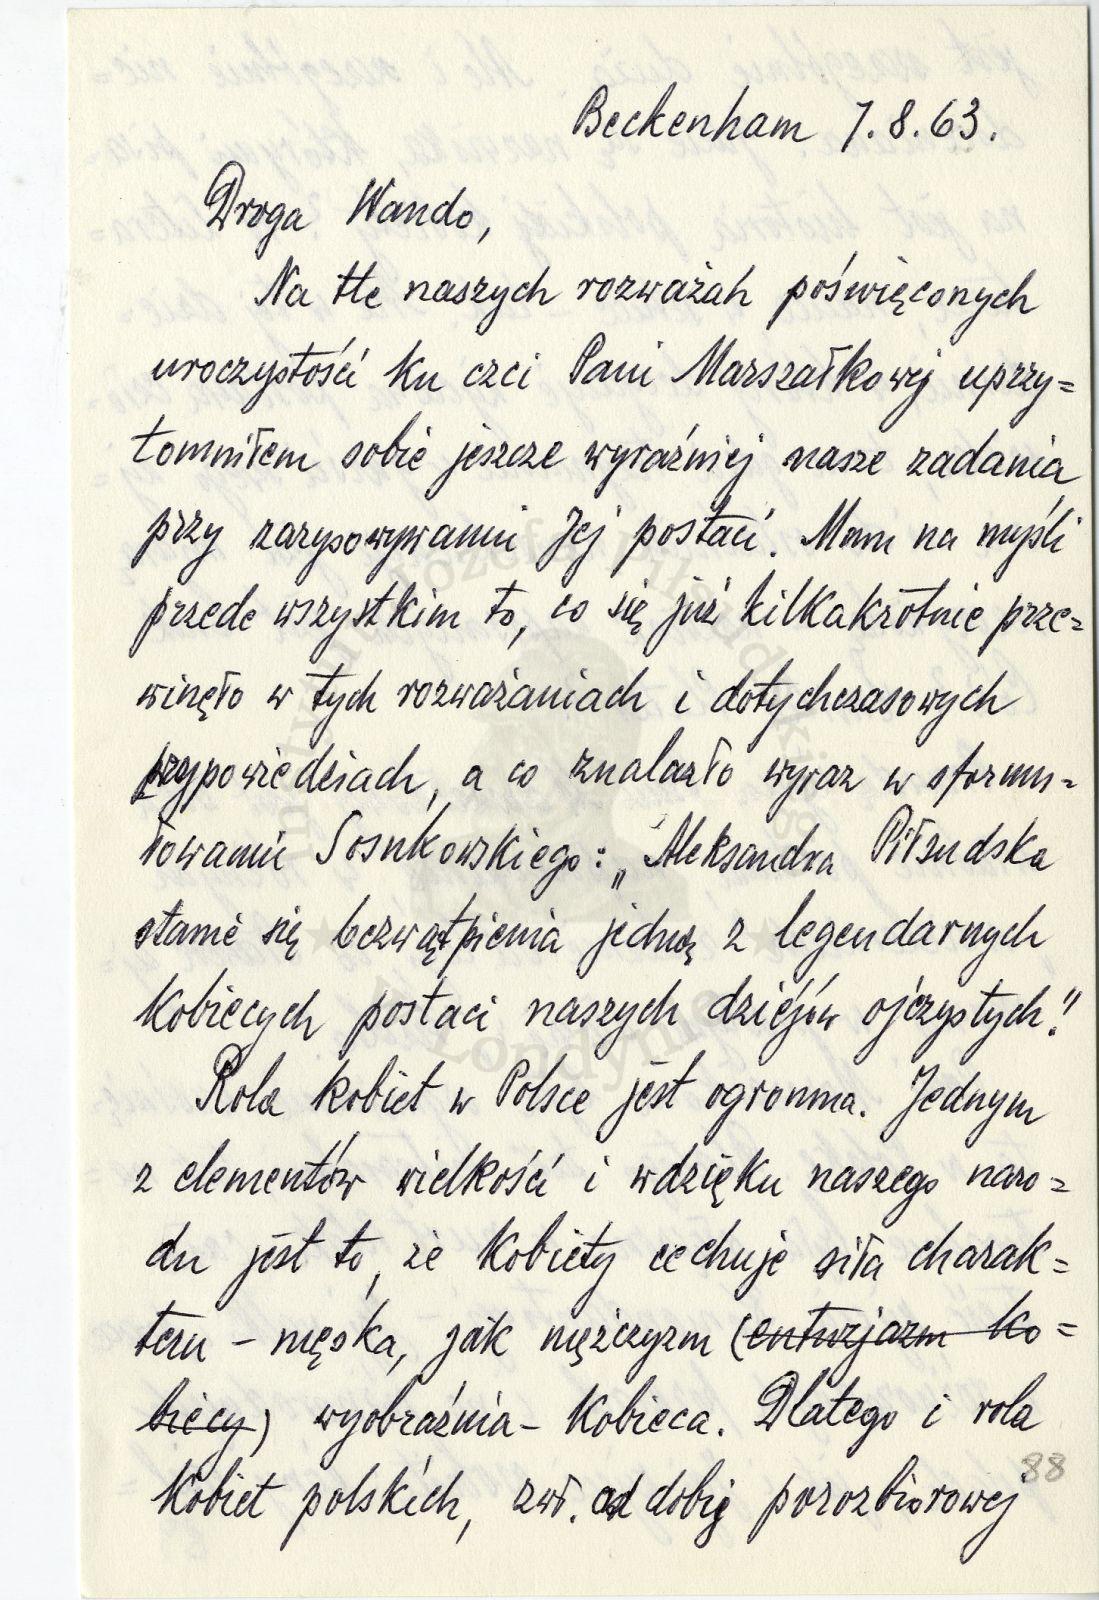 Beckenham 7.8.63.
Droga Wando,
Na tle naszych rozważań poświęconych
uroczystości ku czci Pani Marszałkowej uprzy=
tomniłem sobie jeszcze wyraźniej nasze zadania
przy zarysowywaniu Jej postaci. Mam na myśli
przede wszystkim to, co się już kilkakrotnie prze=
winęło w tych rozważaniach i dotychczasowych
wypowiedziach, a co znalazło wyraz w sformu=
łowaniu Sosnkowskiego: „Aleksandra Piłsudska
stanie się bezwątpienia jedną z legendarnych
kobiecych postaci naszych dziejów ojczystych."
Rola kobiet w Polsce jest ogromna. Jednym
z elementów wielkości i wdzięku naszego naro=
du jest to, że kobiety cechuje siła charak=
teru – męska, jak mężczyzm (entuzjazm ko=
biecy) wyobraźnia – kobieca. Dlatego i rola
kobiet polskich, zwł. od dobie porozbiorowej
88
józef Piłsudski
Londyn